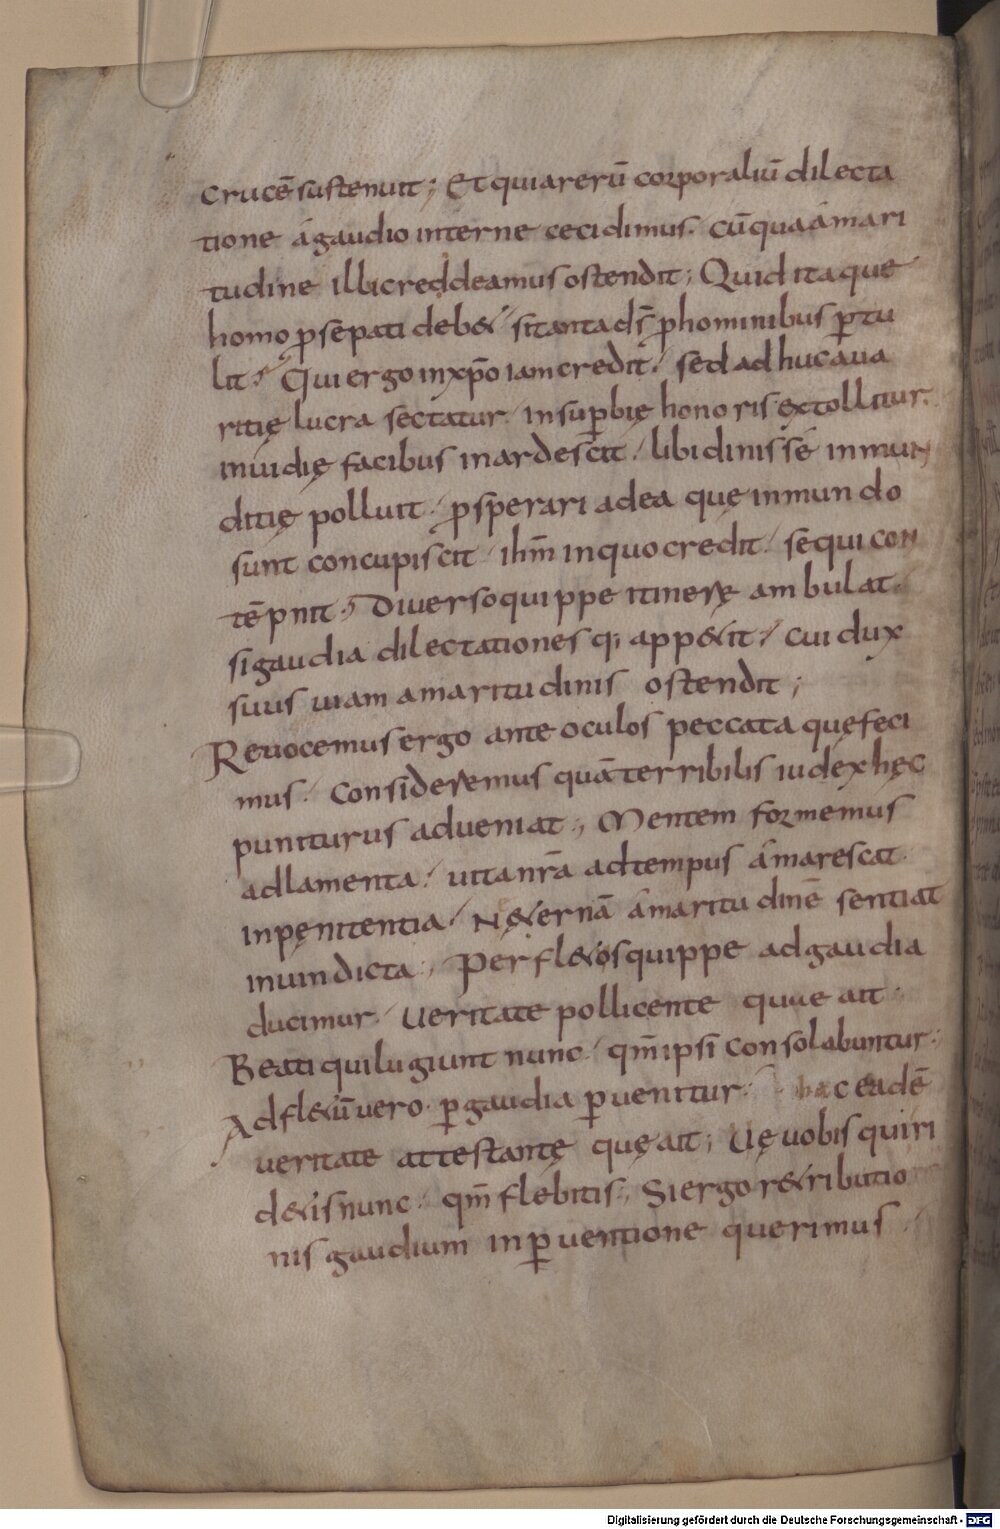 crucē sustenuit; Et quia rerū corporaliū dilecta
tione á gaudio interne cecidimus. cū qua ámari
tudine illic reddeamus ostendit; Quid itaque
homo p se pati deb& si tanta ds̄ p hominibus ptu
lit; Qui ergo in xp̄o iam credit. sed ad huc aua
ritię lucra sectatur. in supbię honoris extollitur.
inuidię facibus inardescit. libidinis sé inmun
ditię polluit. psperari a dea quę in mundo
sunt concupiscit. ihm̄ in quo credit. sequi con
tēpnit; Diverso quippe itinere ambulat.
si gaudia dilectationesq; app&it. cui dux
suus uiam amaritudinis ostendit;
Reuocemus ergo ante oculos peccata quę feci
mus. Consideremus quā terribilis iudex hęc
puniturus adueniat; Mentem formemus
ad lamenta. uita nr̄a ad tempus ámarescat
in pęnitentia. N ę&ernā ámaritudinē sentiat
in uindicta; Per fl&os quippe ad gaudia
ducimur. Veritate pollicente quae ait.
Beati qui lugiunt nunc. qm̄ ipsi consolabuntur.
Ad fl&ū vero p gaudia puenitur. hac eadē
veritate attestante quę ait; Vę uobis qui ri
d&is nunc. qm̄ flebitis; Si ergo r&ributio
nis gaudium in puentione querimus